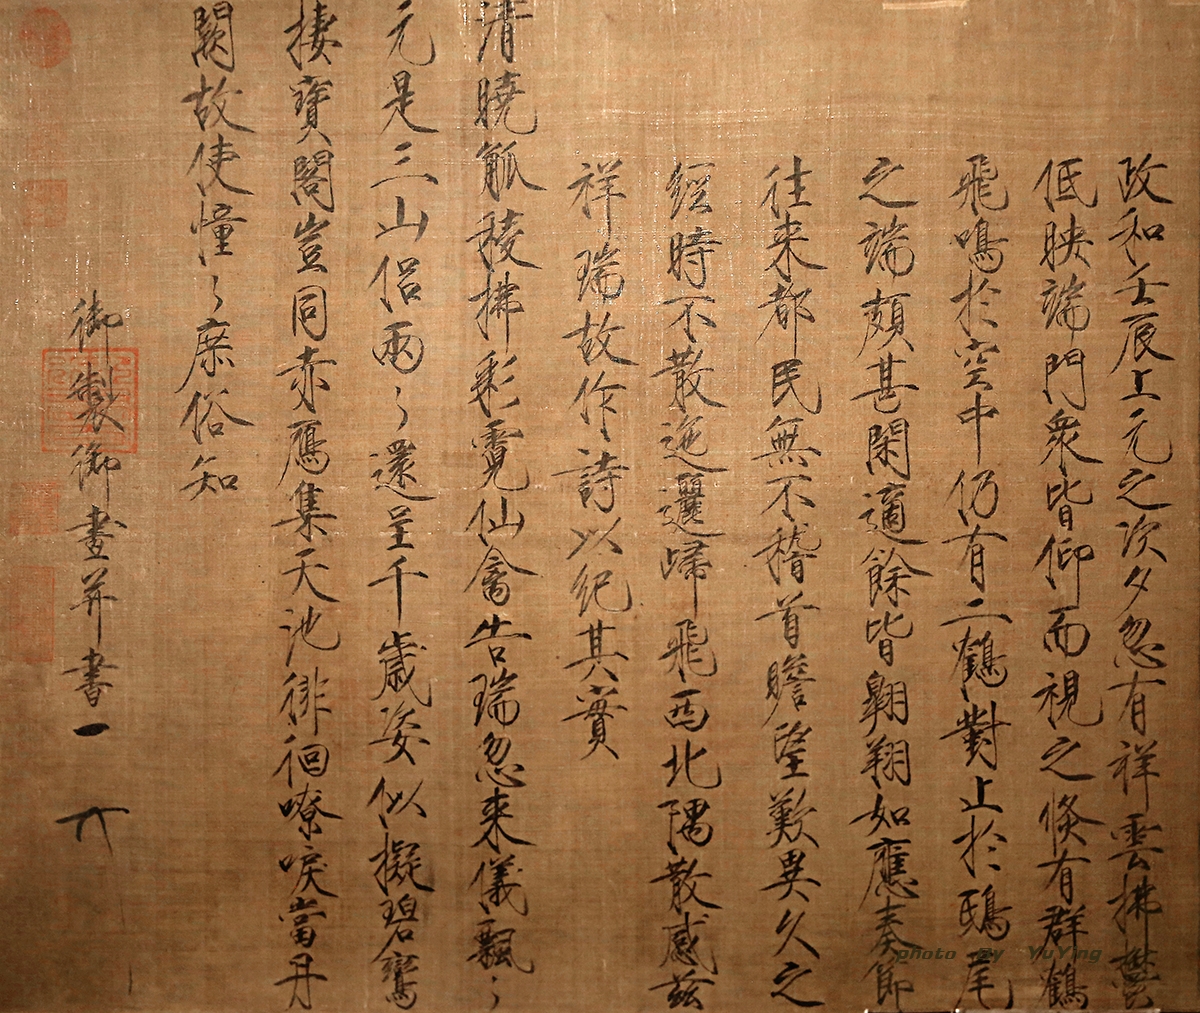 政和壬辰上元之次夕忽有祥雲拂鬱
低映端門衆皆仰而視之倐有群鶴
飛鳴於空中仍有二鶴對止於鴟尾
之端頗甚閑適餘皆翱翔如應奏節
往来都民無不稽首瞻望歎異久之
經時不散迤邐歸飛西北隅散感茲
祥瑞故作詩以紀其實
清曉觚稜拂彩霓仙禽告瑞忽来儀飄〻
元是三山侣兩〻還呈千歲姿似擬碧鸞
棲寶閣豈同赤鴈集天池徘徊嘹唳當丹
闕故使憧〻庶俗知
御製御畫并書
photo By YuYing